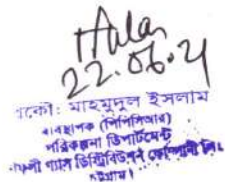 22.06.21
প্রকৌ: মাহমুদুল ইসলাম
ব্যবস্থাপক (পিপিসিআর)
পরিকল্পনা ডিপার্টমেন্ট
গ্যাস ডিস্ট্রিবিউশন কোম্পানী লিঃ
চট্টগ্রাম।